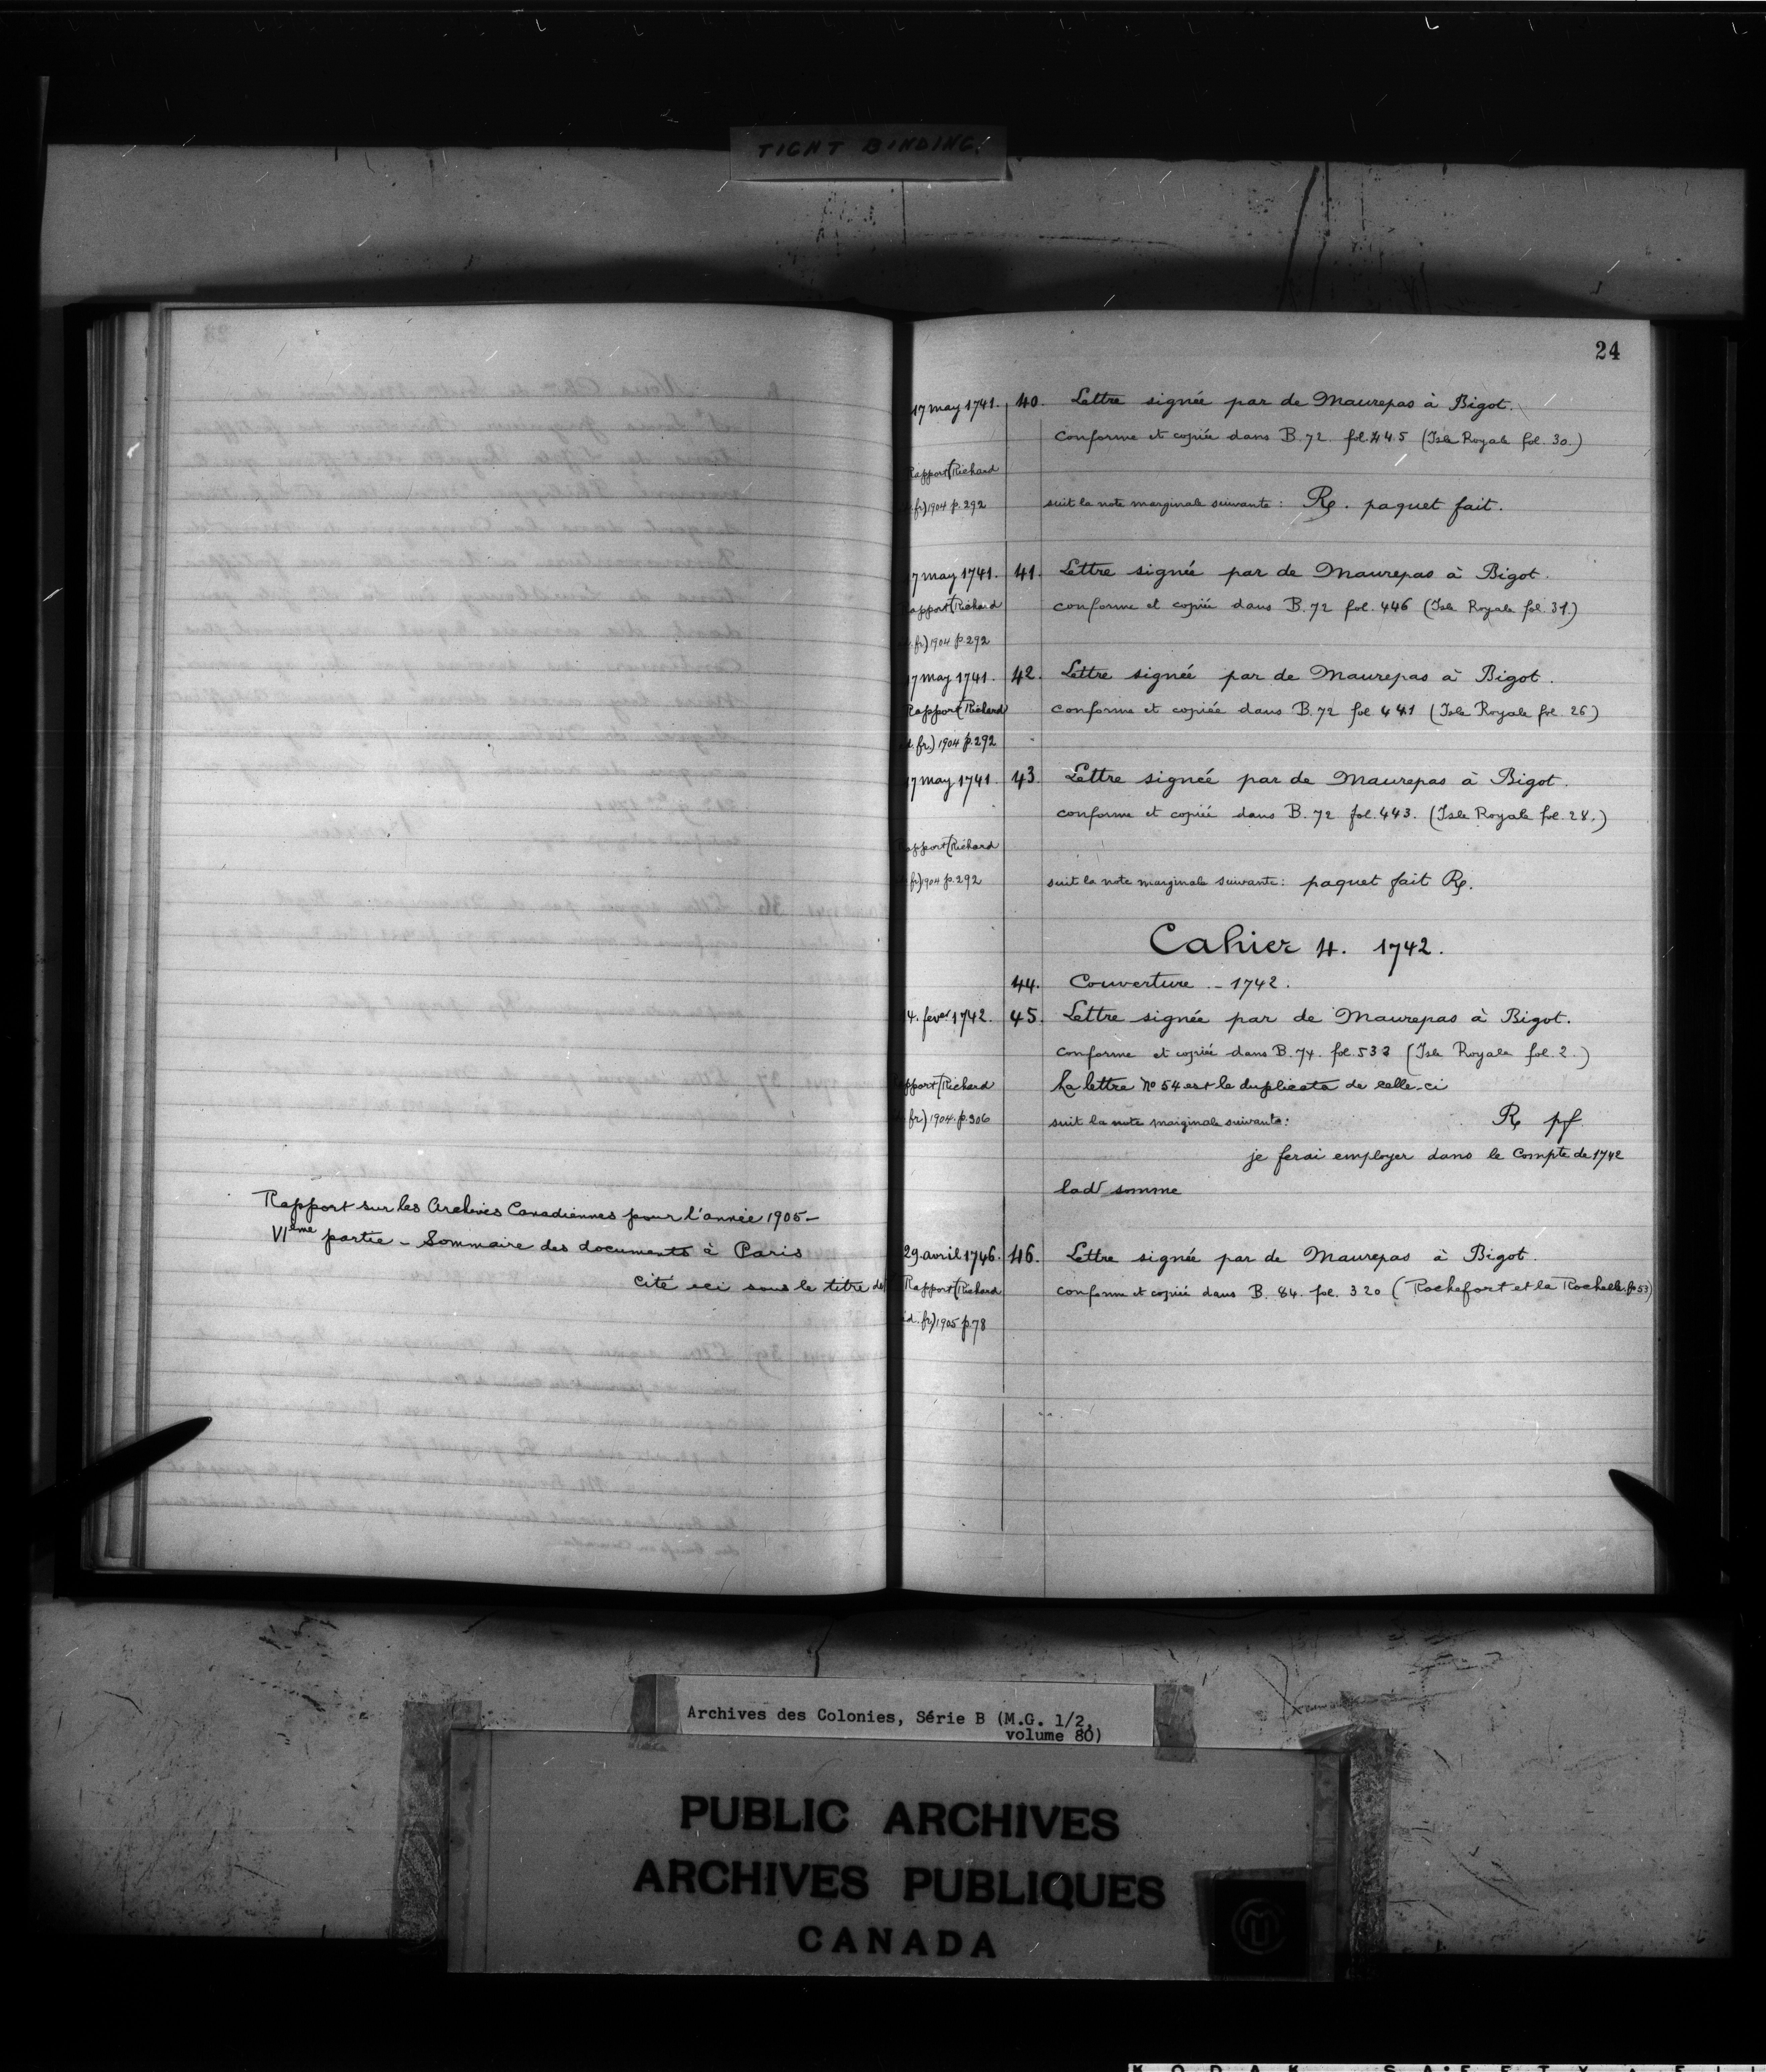 TIGHT BINDING.
24
17 may 1741. 40. Lettre signée par de Maurepas à Bigot.
conforme et copiée dans B. 72. fol. 445 (Isle Royale fol. 30.)
Rapport (Richard
fr) 1904 p. 292 suit la note marginale suivante: Rp. paquet fait.
7 may 1741. 41. Lettre signée par de Maurepas à Bigot.
Rapport (Richard conforme et copiée dans B. 72 fol. 446 (Isle Royale fol. 31.)
fr) 1904 p. 292
7 may 1741. 42. Lettre signée par de Maurepas à Bigot.
Rapport (Richard conforme et copiée dans B. 72 fol 441 (Isle Royale fol. 26)
d. fr.) 1904 p. 292
7 may 1741. 43. Lettre signée par de Maurepas à Bigot.
conforme et copiée dans B. 72 fol. 443. (Isle Royale fol. 28.)
Rapport (Richard
fr) 1904 p. 292 suit la note marginale suivante: paquet fait Rp.
Cahier 4. 1742.
44. Couverture - 1742.
4. fever 1742. 45. Lettre signée par de Maurepas à Bigot.
conforme et copiée dans B. 74. fol. 533 (Isle Royale fol. 2.)
pport (Richard La lettre No 54 est le duplicata de celle-ci
fr) 1904. p. 306 suit la note marginale suivante: Rp pf
je ferai employer dans le Compte de 1742
lad somme
Rapport sur les Archives Canadiennes pour l'année 1905-
VIème partie - Sommaire des documents à Paris
cité ici sous le titre de
29. avril 1746. 46. Lettre signée par de Maurepas à Bigot.
Rapport (Richard conforme et copiée dans B. 84. fol. 320 (Rochefort et la Rochelle. fo 53)
d. fr) 1905 p. 78
Archives des Colonies, Série B (M.G. 1/2,
volume 80)
PUBLIC ARCHIVES
ARCHIVES PUBLIQUES
CANADA
KODAK SAFETY